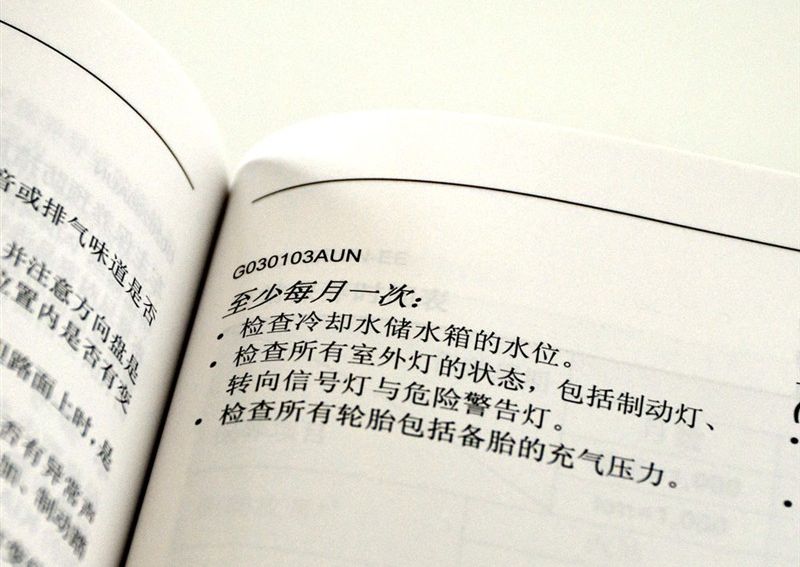 音或排气味道是否
并注意方向盘是
位置内是否有变
路面上时,是
否有异常声
、制动踏
G030103AUN
至少每月一次:
• 检查冷却水储水箱的水位。
• 检查所有室外灯的状态，包括制动灯、
转向信号灯与危险警告灯。
• 检查所有轮胎包括备胎的充气压力。